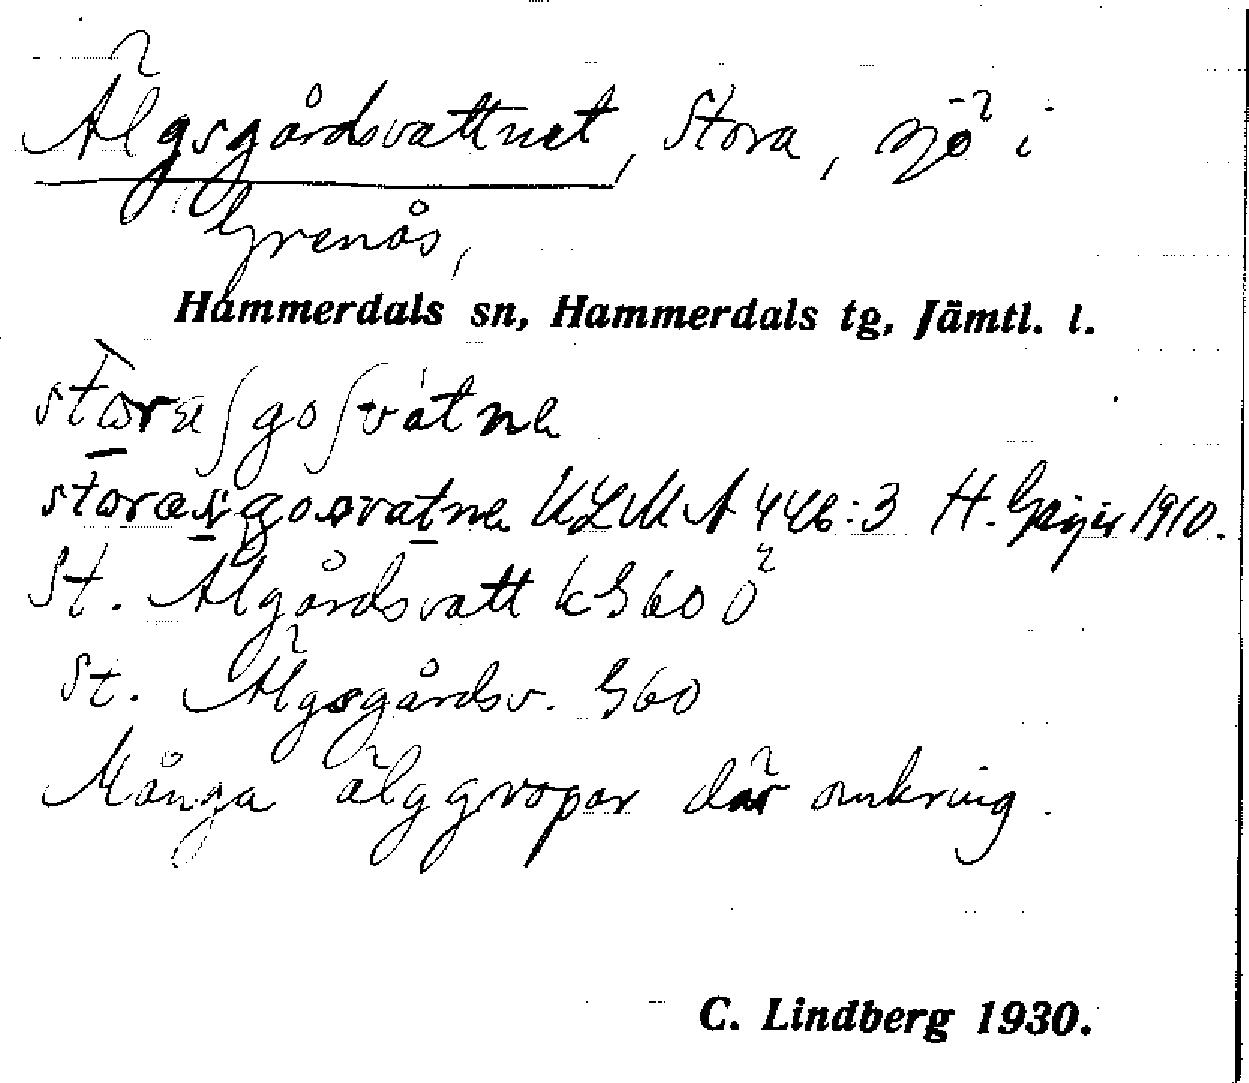 Älgsgårdsvattnet, Stora, sjö i
Grenås,
Hammerdals sn, Hammerdals tg, Jämtl. l.
storaʃgoʃvátne
storæsgosvatne ULMA 446:3 H. Geijer 1910.
St. Älgårdsvatt kG60 Ö
St. Älgsgårdsv. G60
Många älggropar där omkring.
C. Lindberg 1930.